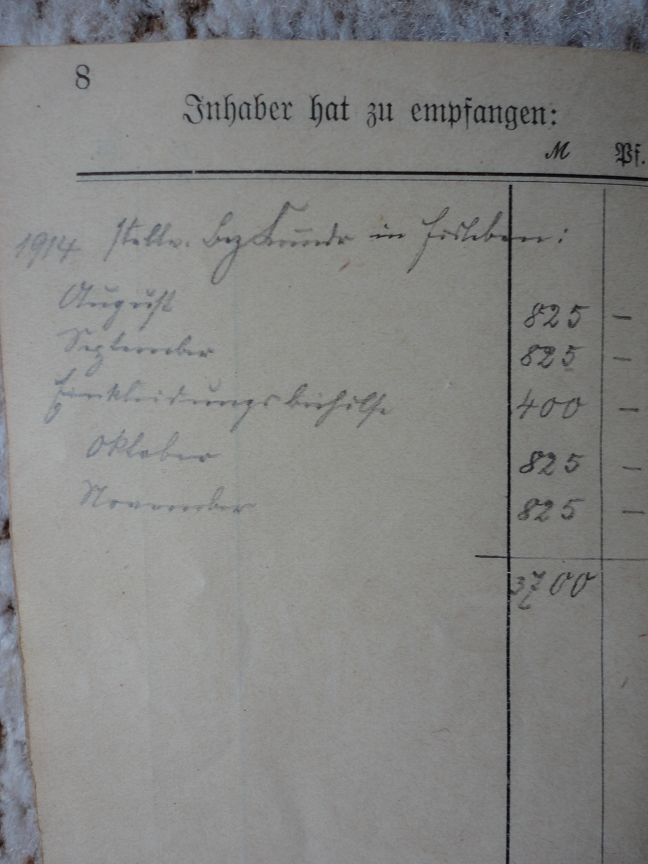 8
Inhaber hat zu empfangen:
M Pf.
1914 stellv. Bez. in Eisleben:
August 825 —
September 825 —
Einkleidungsbeihilfe 400 —
Oktober 825 —
November 825 —
3700